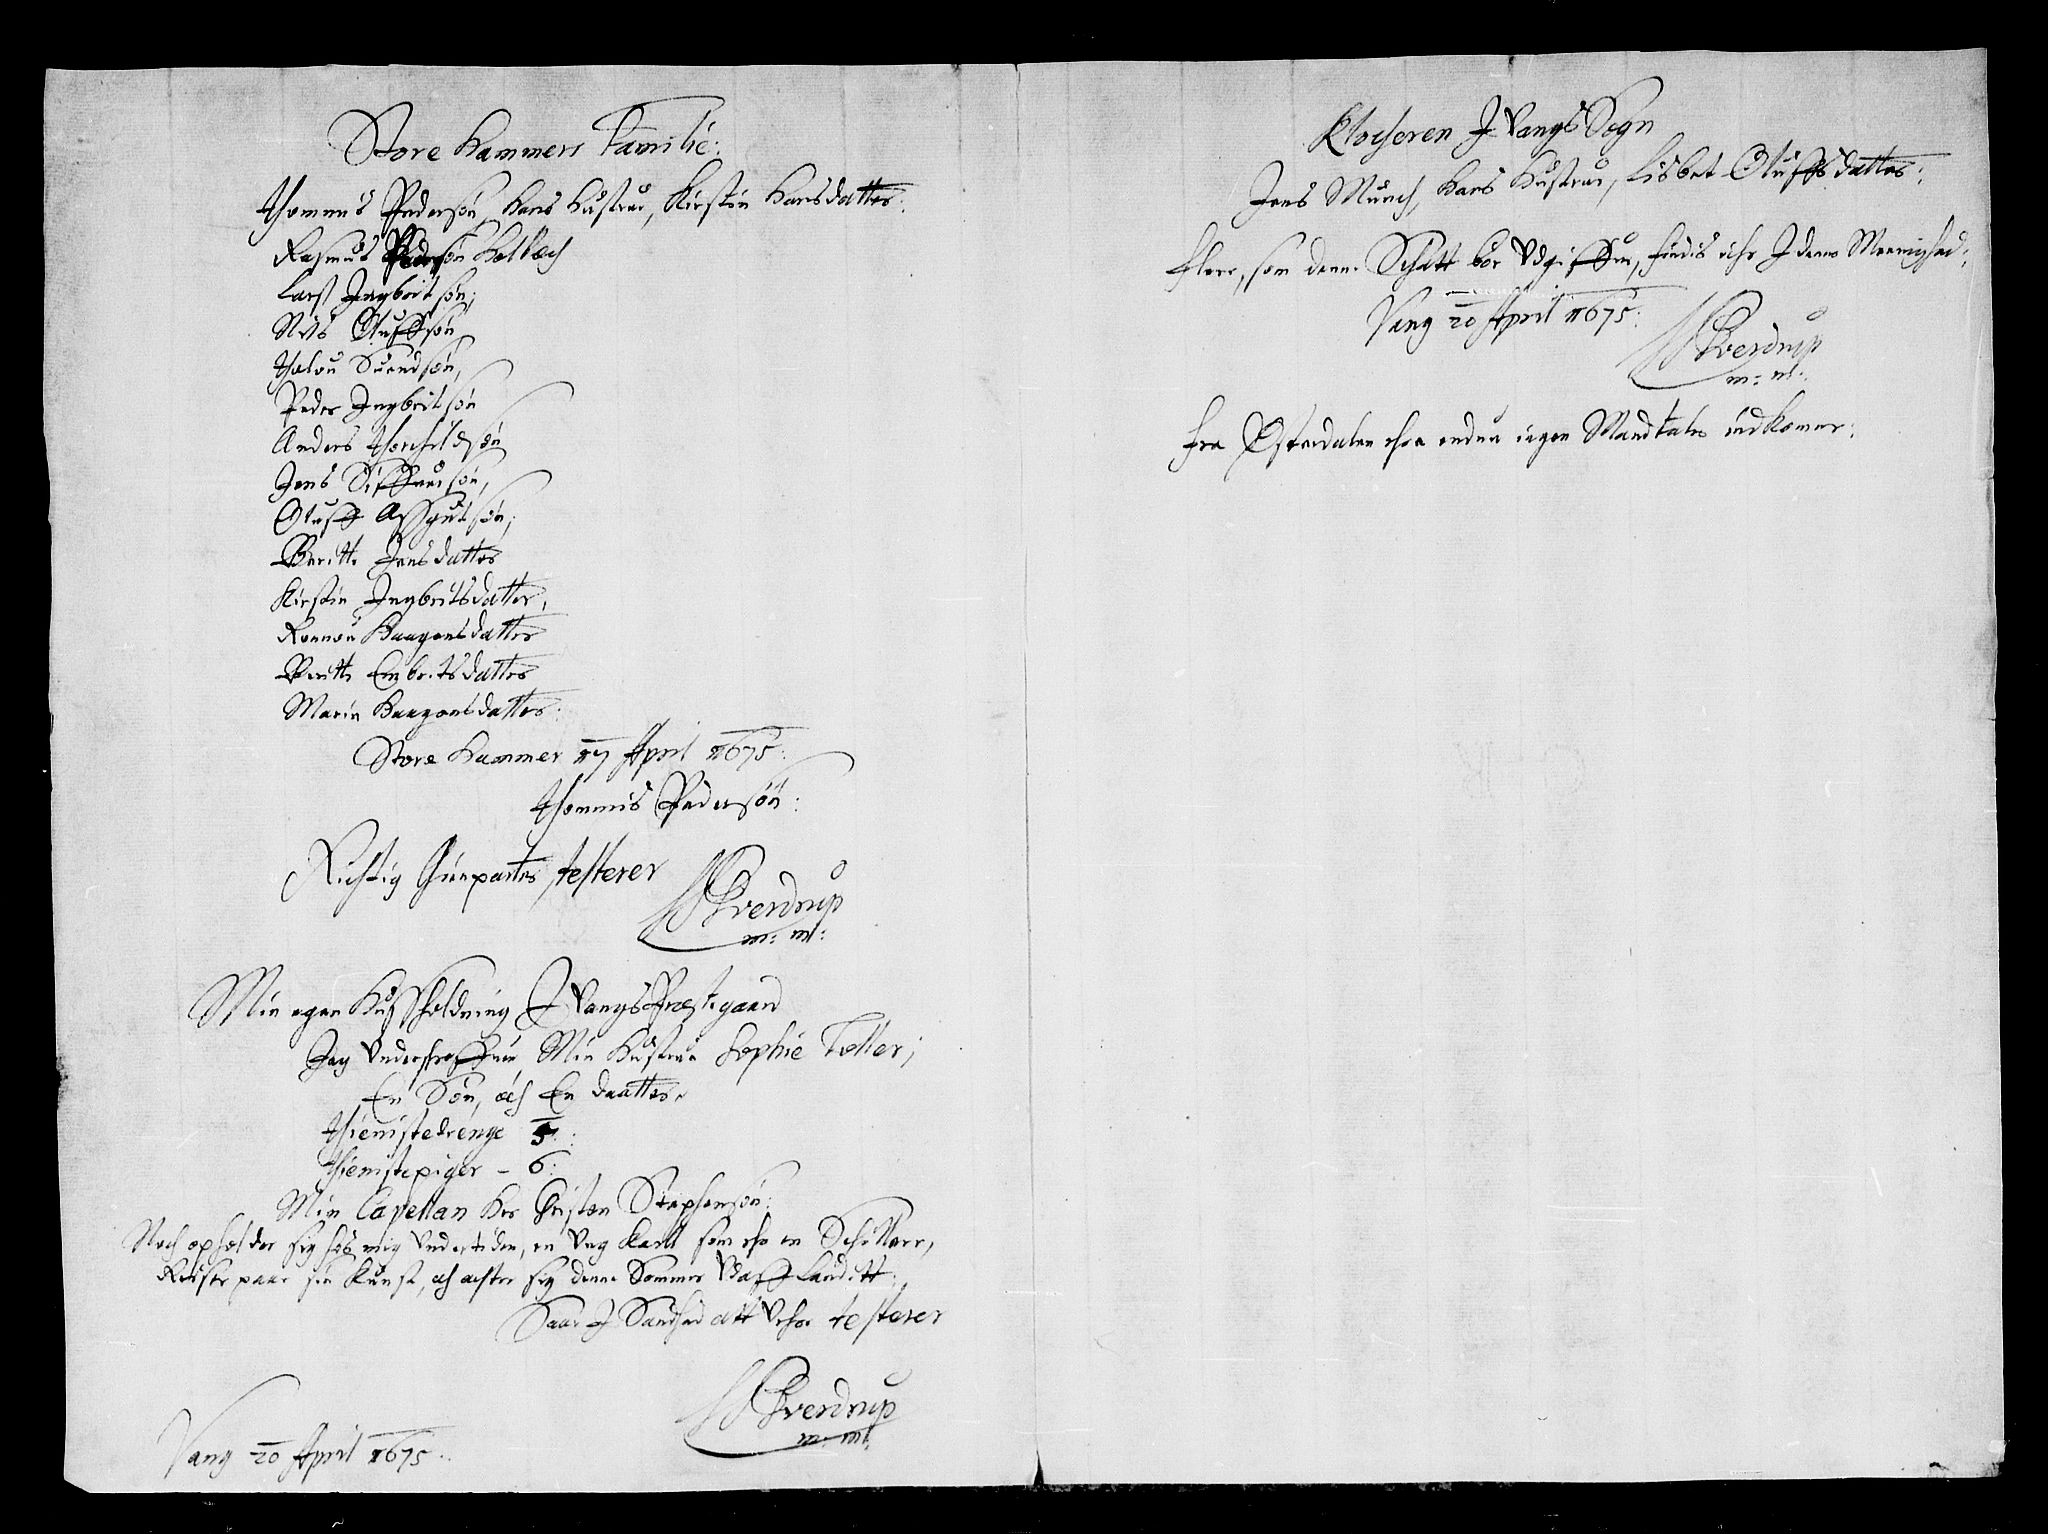 Store Hammers Familie:
Thommes Pedersøn, Hans Hustrue, Kirstin Hansdatter:
Rasmus Pedersøn Holbech
Larss Ingbritsøn;
Nils Oluffsøn
Halvu Suendsøn,
Peder Ingbritsøn
Anders Thorchildsøn
Jens Siffuersøn,
Oluff Assgutsøn;
Beritte Jensdatter
Kirstin Ingbritsdatter,
Ronnou Haagensdatter
Beritte Embritsdatter
Marin Haagensdatter:
Store Hammer 17 April 1675:
Thommis Pedersøn:
Richtig Gienpartes testerer
S Sverdrup
m: m:
Min egen Hussholdning J Vangs Præstegaard
Jeg Underschreffuen, Min Hustrue Sophie Toller;
En Søn, och En daatter.
Thienistedrenge 5:
Thienistepiger - 6:
Min Capellan Her Christen Stephensøn:
Noch opholder sig hos mig Undertiden, en Ung Karll som ehr en Schillerer,
Reiser paa sin Kunst, och achter sig denne Sommer Udaff Landitt:
Saa J Sandhed att Vehre testerer
S Sverdrup
m: m:
Vang 20 April 1675:
Klocheren J Vangs Sogn
Jens Munch, Hans Hustrue, Lisbet Oluffsdatter:
Flere, som denne Schatt bør Udgiffue, findis iche J denne Meenighed:
Vang 20 April 1675:
S Sverdrup
m: m:
Fra Østerdalen ehre endnu ingen Mandtaler indkomne: